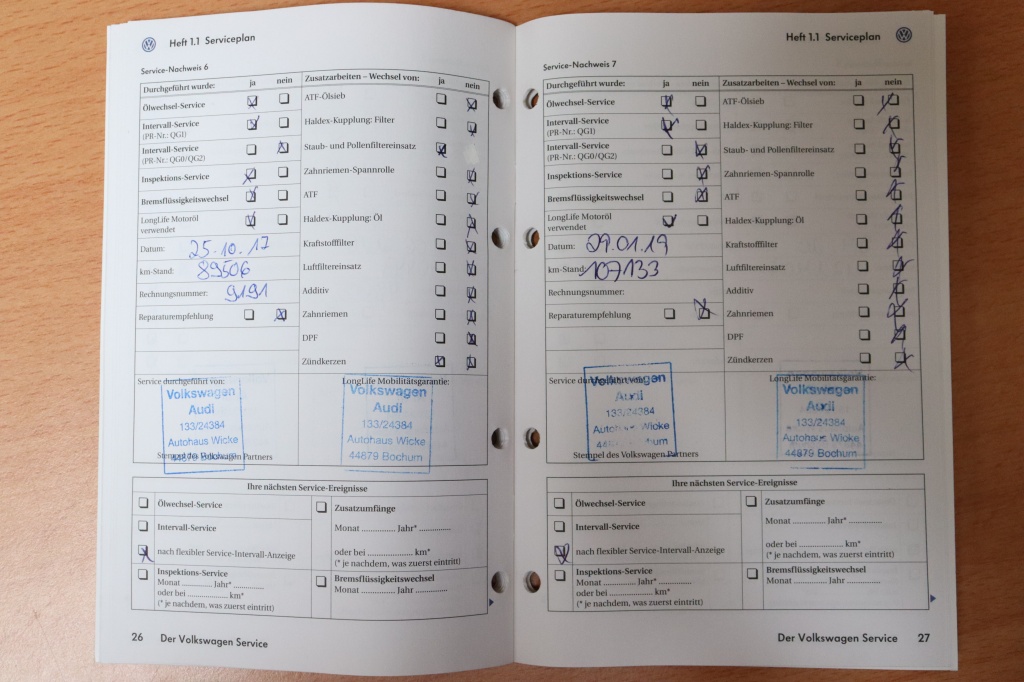 Heft 1.1 Serviceplan
Service-Nachweis 6
Durchgeführt wurde: ja nein Zusatzarbeiten – Wechsel von: ja nein
Ölwechsel-Service ATF-Ölsieb
Intervall-Service Haldex-Kupplung: Filter
(PR-Nr.: QG1)
Intervall-Service Staub- und Pollenfiltereinsatz
(PR-Nr.: QG0/QG2)
Inspektions-Service Zahnriemen-Spannrolle
Bremsflüssigkeitswechsel ATF
LongLife Motoröl Haldex-Kupplung: Öl
verwendet
Datum: 25.10.17 Kraftstofffilter
km-Stand: 89506 Luftfiltereinsatz
Rechnungsnummer: 9191 Additiv
Reparaturempfehlung Zahnriemen
DPF
Zündkerzen
Service durchgeführt von: LongLife Mobilitätsgarantie:
Volkswagen Volkswagen
Audi Audi
133/24384 133/24384
Autohaus Wicke Autohaus Wicke
44879 Bochum 44879 Bochum
Stempel des Volkswagen Partners
Ihre nächsten Service-Ereignisse
Ölwechsel-Service Zusatzumfänge
Intervall-Service Monat ............. Jahr* .............
nach flexibler Service-Intervall-Anzeige oder bei ................. km*
(* je nachdem, was zuerst eintritt)
Inspektions-Service Bremsflüssigkeitswechsel
Monat ............ Jahr* ............ Monat ............. Jahr .............
oder bei ................ km*
(* je nachdem, was zuerst eintritt)
26 Der Volkswagen Service
Heft 1.1 Serviceplan
Service-Nachweis 7
Durchgeführt wurde: ja nein Zusatzarbeiten – Wechsel von: ja nein
Ölwechsel-Service ATF-Ölsieb
Intervall-Service Haldex-Kupplung: Filter
(PR-Nr.: QG1)
Intervall-Service Staub- und Pollenfiltereinsatz
(PR-Nr.: QG0/QG2)
Inspektions-Service Zahnriemen-Spannrolle
Bremsflüssigkeitswechsel ATF
LongLife Motoröl Haldex-Kupplung: Öl
verwendet
Datum: 29.01.19 Kraftstofffilter
km-Stand: 107133 Luftfiltereinsatz
Rechnungsnummer: Additiv
Reparaturempfehlung Zahnriemen
DPF
Zündkerzen
Service durchgeführt von: LongLife Mobilitätsgarantie:
Volkswagen Volkswagen
Audi Audi
133/24384 133/24384
Wicke Autohaus Wicke
44879 Bochum
Stempel des Volkswagen Partners
Ihre nächsten Service-Ereignisse
Ölwechsel-Service Zusatzumfänge
Intervall-Service Monat ............. Jahr* .............
nach flexibler Service-Intervall-Anzeige oder bei ................. km*
(* je nachdem, was zuerst eintritt)
Inspektions-Service Bremsflüssigkeitswechsel
Monat ............ Jahr* ............ Monat ............. Jahr .............
oder bei ................ km*
(* je nachdem, was zuerst eintritt)
Der Volkswagen Service 27